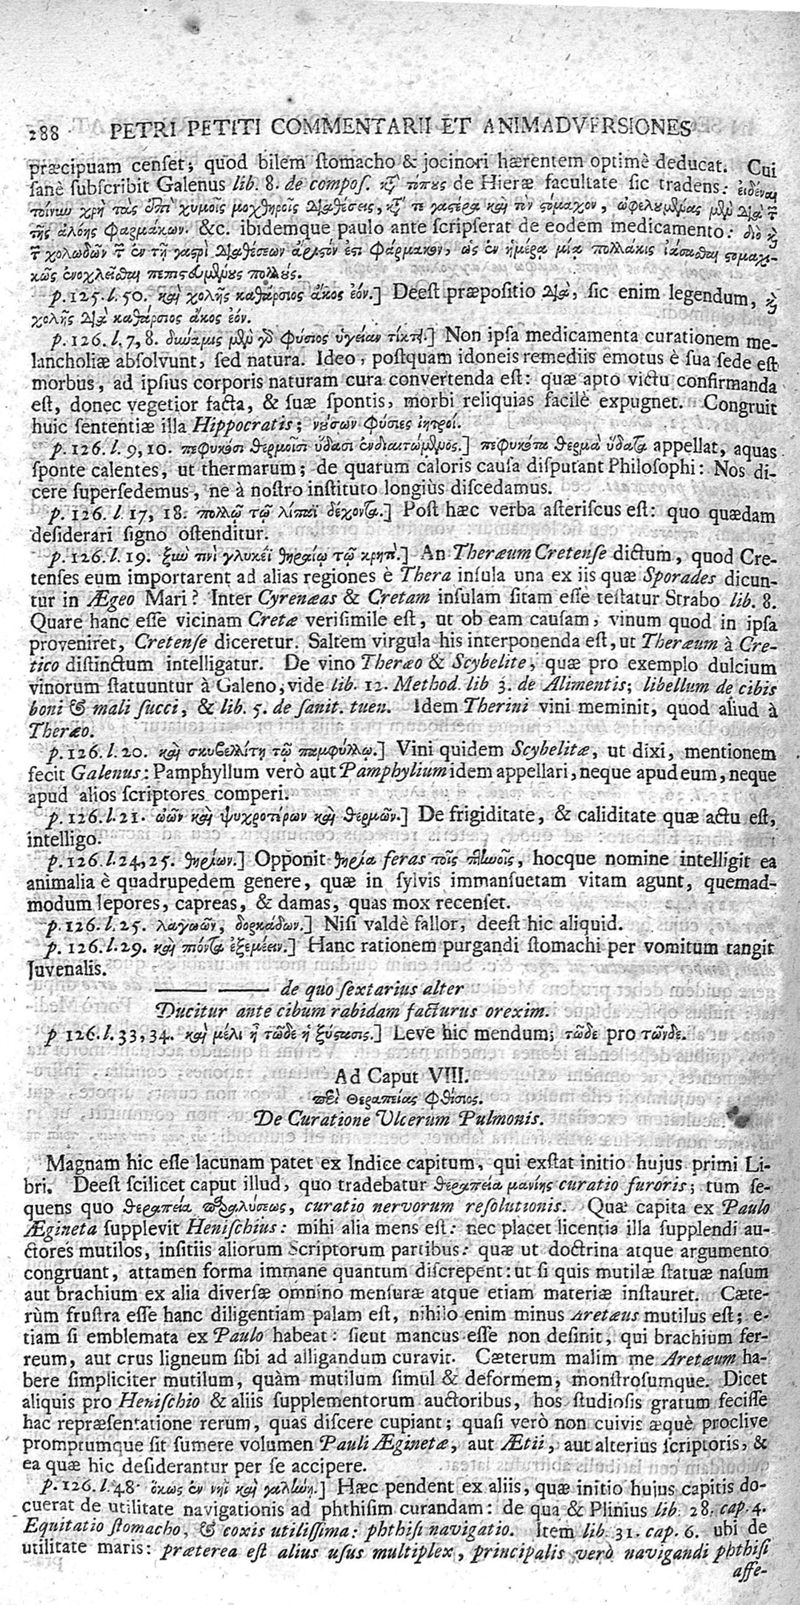 288 PETRI PETITI COMMENTARII ET ANIMADVERSIONES
præcipuam censet; quod bilem stomacho & jocinori hærentem optimè deducat. Cui
sanè subscribit Galenus lib. 8. de compos. κτ̃ τόπους de Hieræ facultate sic tradens: εἰδέναι
τοίνυν χρὴ τὰς ἐπὶ χυμοῖς μοχθηροῖς διαθέσεις, κτ̃ τε γαςέρα καὶ τὸν ςόμαχον, ὠφελουμένας μὲν διὰ τ̃
τῆς ἀλόης φαρμάκων. &c. ibidemque paulo ante scripserat de eodem medicamento: διὸ καὶ
τ̃ χολωδῶν τ̃ ἐν τῇ γαςρὶ διαθέσεων ἄριςόν ἐςι φάρμακον, ὡς ἐν ἡμέρᾳ μιᾷ πολλάκις ἰάσασθαι ςομαχι-
κῶς ἐνοχλεῖσθαι πεπιςευμένους πολλούς.
p. 125. l. 50. καὶ χολῆς καθάρσιος ἄκος ἐόν.] Deest præpositio διὰ, sic enim legendum, καὶ
χολῆς διὰ καθάρσιος ἄκος ἐόν.
p. 126. l. 7, 8. δυνάμις μὲν γὰρ φύσιος ὑγείαν τίκτει.] Non ipsa medicamenta curationem me-
lancholiæ absolvunt, sed natura. Ideo, postquam idoneis remediis emotus è sua sede est
morbus, ad ipsius corporis naturam cura convertenda est: quæ apto victu confirmanda
est, donec vegetior facta, & suæ spontis, morbi reliquias facilè expugnet. Congruit
huic sententiæ illa Hippocratis; νούσων φύσιες ἰητροί.
p. 126. l. 9, 10. πεφυκόσι θερμοῖσι ὕδασι ἐνδιαιτώμενος.] πεφυκότα θερμὰ ὕδατα appellat, aquas
sponte calentes, ut thermarum; de quarum caloris causa disputant Philosophi: Nos di-
cere supersedemus, ne à nostro instituto longiùs discedamus.
p. 126. l. 17, 18. πολλῷ τῷ λίπαϊ δέχονται.] Post hæc verba asteriscus est: quo quædam
desiderari signo ostenditur.
p. 126. l. 19. ξὺν τινὶ γλυκεῖ θηραίῳ τῷ κρητὶ.] An Theræum Cretense dictum, quod Cre-
tenses eum importarent ad alias regiones è Thera insula una ex iis quæ Sporades dicun-
tur in Ægeo Mari? Inter Cyrenæas & Cretam insulam sitam esse testatur Strabo lib. 8.
Quare hanc esse vicinam Cretæ verisimile est, ut ob eam causam, vinum quod in ipsa
proveniret, Cretense diceretur. Saltem virgula his interponenda est, ut Theræum à Cre-
tico distinctum intelligatur. De vino Theræo & Scybelite, quæ pro exemplo dulcium
vinorum statuuntur à Galeno, vide lib. 12. Method. lib 3. de Alimentis; libellum de cibis
boni & mali succi, & lib. 5. de sanit. tuen. Idem Therini vini meminit, quod aliud à
Theræo.
p. 126. l. 20. καὶ σκυβελλίτῃ τῷ παμφύλλῳ.] Vini quidem Scybelitæ, ut dixi, mentionem
fecit Galenus: Pamphyllum verò aut Pamphylium idem appellari, neque apud eum, neque
apud alios scriptores comperi.
p. 126. l. 21. ὠῶν καὶ ψυχροτέρων καὶ θερμῶν.] De frigiditate, & caliditate quæ actu est,
intelligo.
p. 126. l. 24, 25. θηρίων.] Opponit θηρία feras τοῖς πτηνοῖς, hocque nomine intelligit ea
animalia è quadrupedem genere, quæ in sylvis immansuetam vitam agunt, quemad-
modum lepores, capreas, & damas, quas mox recenset.
p. 126. l. 25. λαγωῶν, δορκάδων.] Nisi valdè fallor, deest hic aliquid.
p. 126. l. 29. καὶ πιόντα ἐξεμέειν.] Hanc rationem purgandi stomachi per vomitum tangit
Juvenalis.
—— —— de quo sextarius alter
Ducitur ante cibum rabidam facturus orexim.
p 126. l. 33, 34. καὶ μέλι ἢ τῶδε ἡ ξύςασις.] Leve hic mendum; τῶδε pro τῶνδε.
Ad Caput VIII.
περὶ θεραπείας φθίσιος.
De Curatione Ulcerum Pulmonis.
Magnam hic esse lacunam patet ex Indice capitum, qui exstat initio hujus primi Li-
bri. Deest scilicet caput illud, quo tradebatur θεραπεία μανίης curatio furoris; tum se-
quens quo θεραπεία παραλύσεως, curatio nervorum resolutionis. Quæ capita ex Paulo
Ægineta supplevit Henischius: mihi alia mens est: nec placet licentia illa supplendi au-
ctores mutilos, insitiis aliorum Scriptorum partibus: quæ ut doctrina atque argumento
congruant, attamen forma immane quantum discrepent: ut si quis mutilæ statuæ nasum
aut brachium ex alia diversæ omnino mensuræ atque etiam materiæ instauret. Cæte-
rùm frustra esse hanc diligentiam palam est, nihilo enim minus Aretæus mutilus est; e-
tiam si emblemata ex Paulo habeat: sicut mancus esse non desinit, qui brachium fer-
reum, aut crus ligneum sibi ad alligandum curavit. Cæterum malim me Aretæum ha-
bere simpliciter mutilum, quàm mutilum simul & deformem, monstrosumque. Dicet
aliquis pro Henischio & aliis supplementorum auctoribus, hos studiosis gratum fecisse
hac repræsentatione rerum, quas discere cupiant; quasi verò non cuivis æquè proclive
promptumque sit sumere volumen Pauli Æginetæ, aut Ætii, aut alterius scriptoris, &
ea quæ hic desiderantur per se accipere.
p. 126. l. 48. ὅκως ἐν νηῒ καὶ γαλήνῃ.] Hæc pendent ex aliis, quæ initio hujus capitis do-
cuerat de utilitate navigationis ad phthisim curandam: de qua & Plinius lib. 28. cap. 4.
Equitatio stomacho, & coxis utilissima: phthisi navigatio. Item lib. 31. cap. 6. ubi de
utilitate maris: præterea est alius usus multiplex, principalis verò navigandi phthisi
affe-